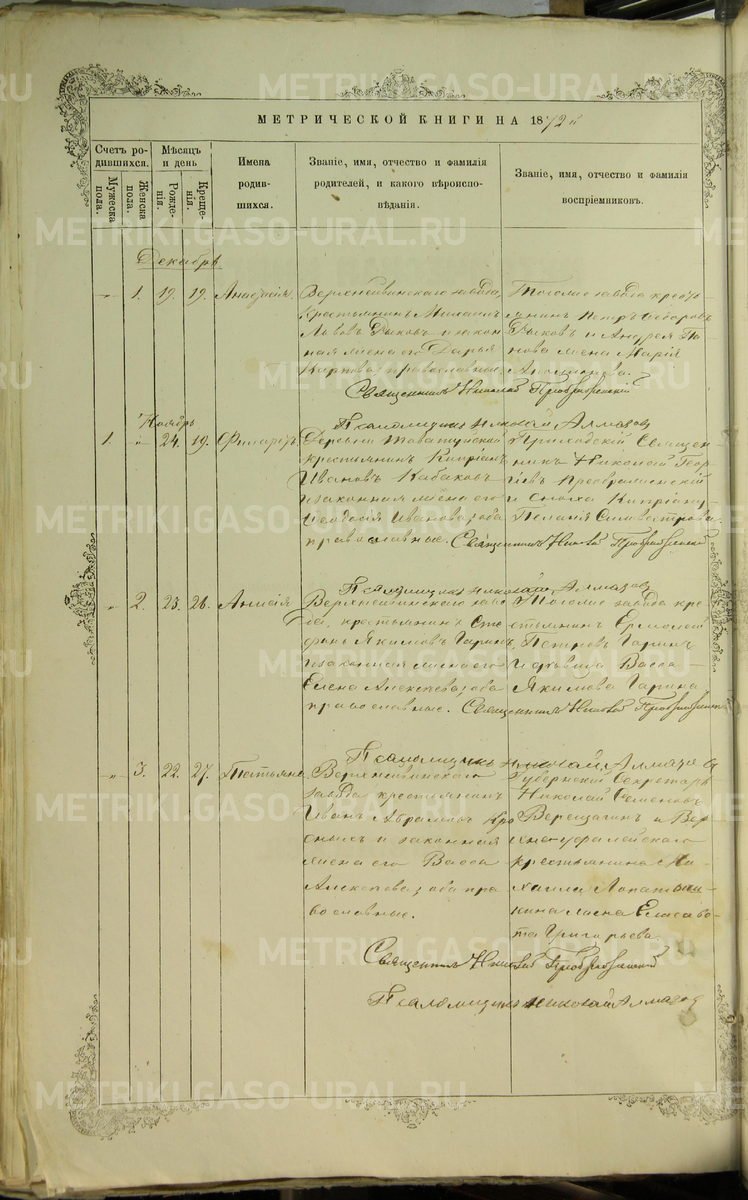 METRIKI.GASO-URAL.RU
МЕТРИЧЕСКОЙ КНИГИ НА 1872й
Счетъ родившихся.
Мужеска пола.
Женска пола.
Мѣсяцъ и день
Рожденія.
Крещенія.
Имена родившихся.
Званіе, имя, отчество и фамилія родителей, и какого вѣроисповѣданія.
Званіе, имя, отчество и фамилія воспріемниковъ.
Декабрь
„ 1. 19. 19. Анастасія.
Верхнейвинскаго завода,
крестьянинъ Михаилъ
Львовъ Рыковъ и закон
ная жена его Дарья
Карпова, православные.
Тогоже завода кресть
янинъ Петръ Ѳедоровъ
Рыковъ и Андрея Па
нова жена Марія
Священникъ Николай Преображенскій
Псаломщикъ Николай Алмазовъ
Ноябрь
1. „ 24. 19. Филаретъ.
Деревни Таватуйской
крестьянинъ Кипріанъ
Ивановъ Кабаковъ
и законная жена его
Ѳеодосія Иванова, оба
православные.
Приходскій Священ
никъ Николай Геор
гіевъ Преображенскій
и сноха Кипріану
Пелагія Сильвестрова.
Священникъ Николай Преображенскій
Псаломщикъ Николай Алмазовъ
„ 2. 23. 26. Анисія
Верхнейвинскаго заво
да, крестьянинъ Сте
фанъ Якимовъ Гаринъ
и законная жена его
Елена Алексѣева, оба
православные.
Тогоже завода кре
стьянинъ Ермолай
Петровъ Гаринъ
и дѣвица Васса
Якимова Гарина
Священникъ Николай Преображенскій
Псаломщикъ Николай Алмазовъ
„ 3. 22. 27. Татьяна
Верхнейвинскаго
завода, крестьянинъ
Иванъ Аврамовъ
и законная
жена его Васса
Алексѣева, оба пра
вославные.
Губернскій Секретарь
Николай Семеновъ
Верещагинъ и Вер
хне-уфалейскаго
крестьянина Ми
хаила Лопатыш
кина жена Елисаве
та Григорьева.
Священникъ Николай Преображенскій
Псаломщикъ Николай Алмазовъ